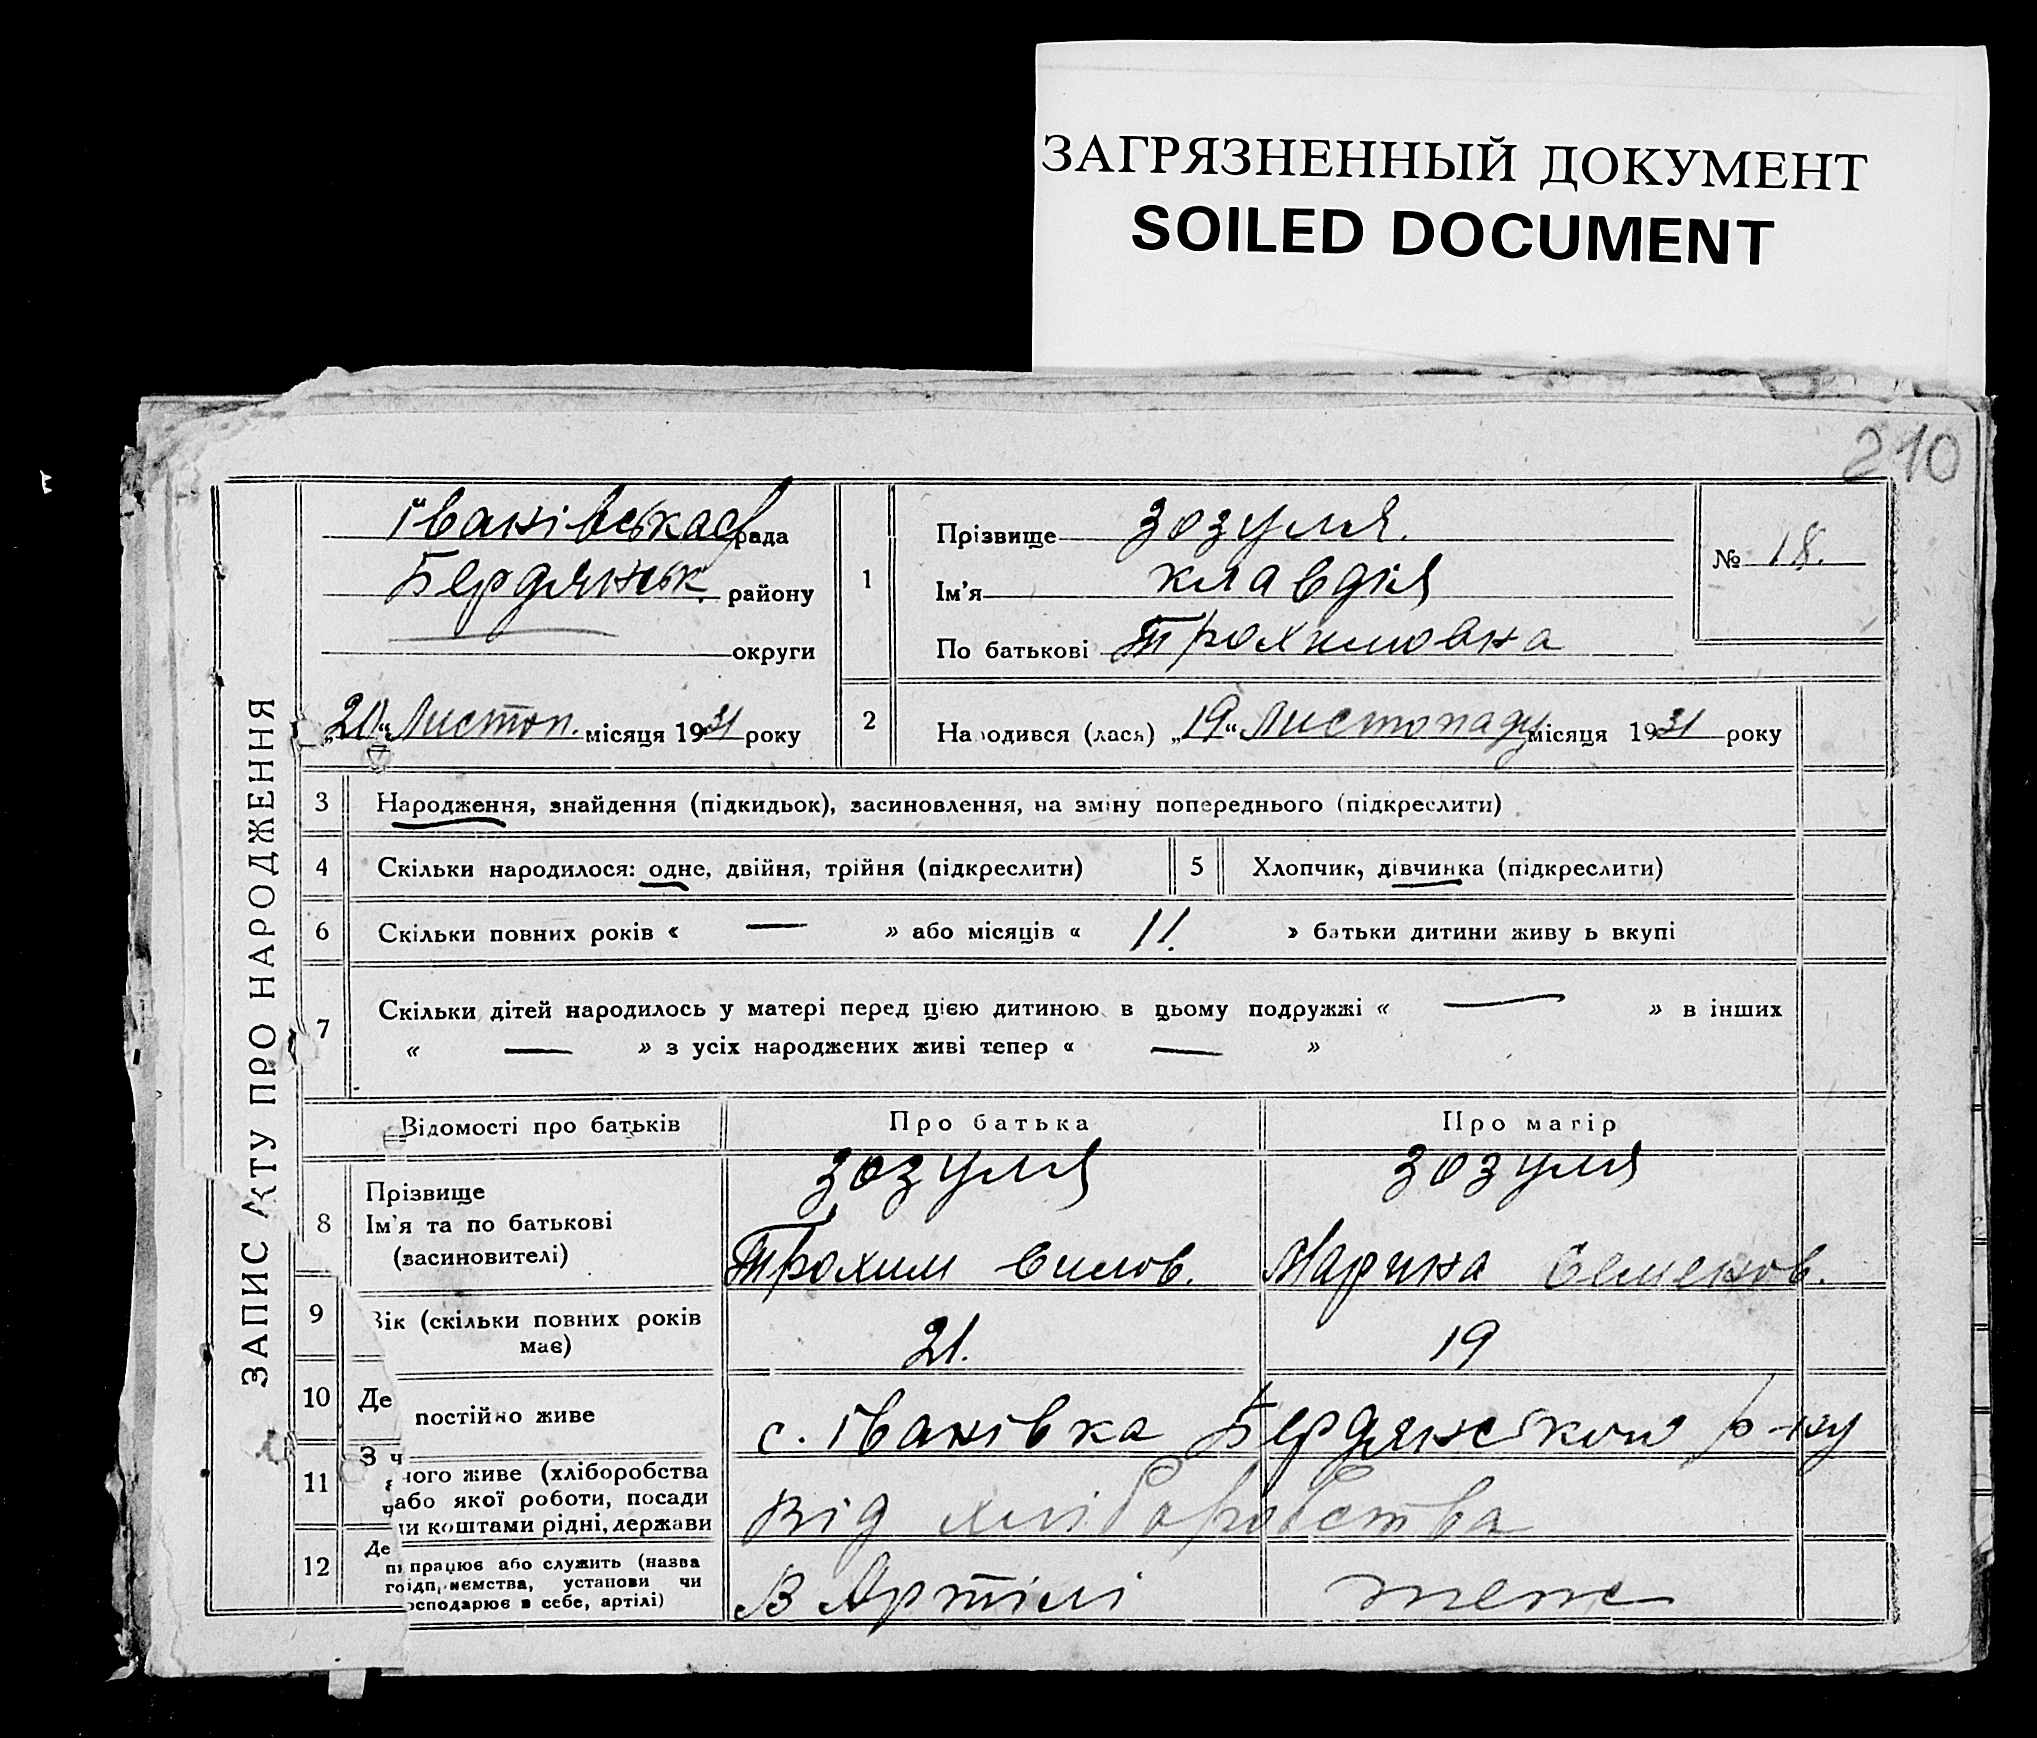 ЗАГРЯЗНЕННЫЙ ДОКУМЕНТ
SOILED DOCUMENT
210
ЗАПИС АКТУ ПРО НАРОДЖЕННЯ
Іванівська с/рада
Бердянськ. району
округи
„20“ Листоп. місяця 1931 року
1
Прізвище Зозуля.
Ім'я Клавдія
По батькові Трохимовна
№ 18.
2 Народився (лася) „19“ Листопаду місяця 1931 року
3 Народження, знайдення (підкидьок), засиновлення, на зміну попереднього (підкреслити)
4 Скільки народилося: одне, двійня, трійня (підкреслити) 5 Хлопчик, дівчинка (підкреслити)
6 Скільки повних років « — » або місяців « 11. » батьки дитини живу ь вкупі
7 Скільки дітей народилось у матері перед цією дитиною в цьому подружжі « — » в інших
« — » з усіх народжених живі тепер « — »
Відомості про батьків Про батька Про матір
8 Прізвище Зозуля Зозуля
Ім'я та по батькові
(засиновителі) Трохим Марина Семенов.
9 Вік (скільки повних років
має) 21. 19
10 Де постійно живе с. Іванівка Бердянського р-ну
11 З ч
ного живе (хліборобства
або якої роботи, посади
чи коштами рідні, держави Від хліборобства
12 Де
працює або служить (назва
підприємства, установи чи
господарює в себе, артілі) В Артілі теж